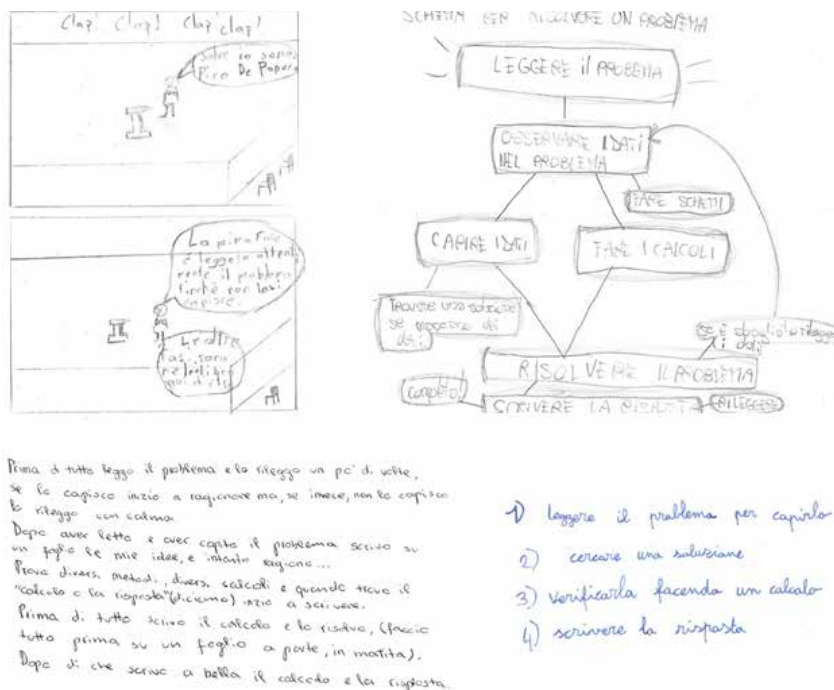 Clap! Clap! Clap! clap!
Salve io sono
Pico De Paperis
La prima fase
è leggere attenta
mente il problema
finchè non lo si
capisce.
Le altre
fasi sono
nel libro
qui dietro
SCHEMA PER RISOLVERE UN PROBLEMA
LEGGERE il PROBLEMA
OSSERVARE I DATI
NEL PROBLEMA
FARE SCHEMI
CAPIRE I DATI
FARE I CALCOLI
TROVARE UNA
se
di
SE È sbagliato rileggo
i dati
RISOLVERE IL PROBLEMA
completa!
SCRIVERE LA RISPOSTA
RILEGGERE
Prima di tutto leggo il problema e lo rileggo un po' di volte,
se lo capisco inizio a ragionare ma, se invece, non lo capisco
lo rileggo con calma
Dopo aver letto e aver capito il problema scrivo su
un foglio le mie idee, e intanto ragiono...
Provo diversi metodi, diversi calcoli e quando trovo il
"calcolo o la risposta" (diciamo) inizio a scrivere.
Prima di tutto scrivo il calcolo e lo risolvo, (faccio
tutto prima su un foglio a parte, in matita).
Dopo di che scrivo a bella il calcolo e la risposta.
1) leggere il problema per capirlo
2) cercare una soluzione
3) verificarla facendo un calcolo
4) scrivere la risposta